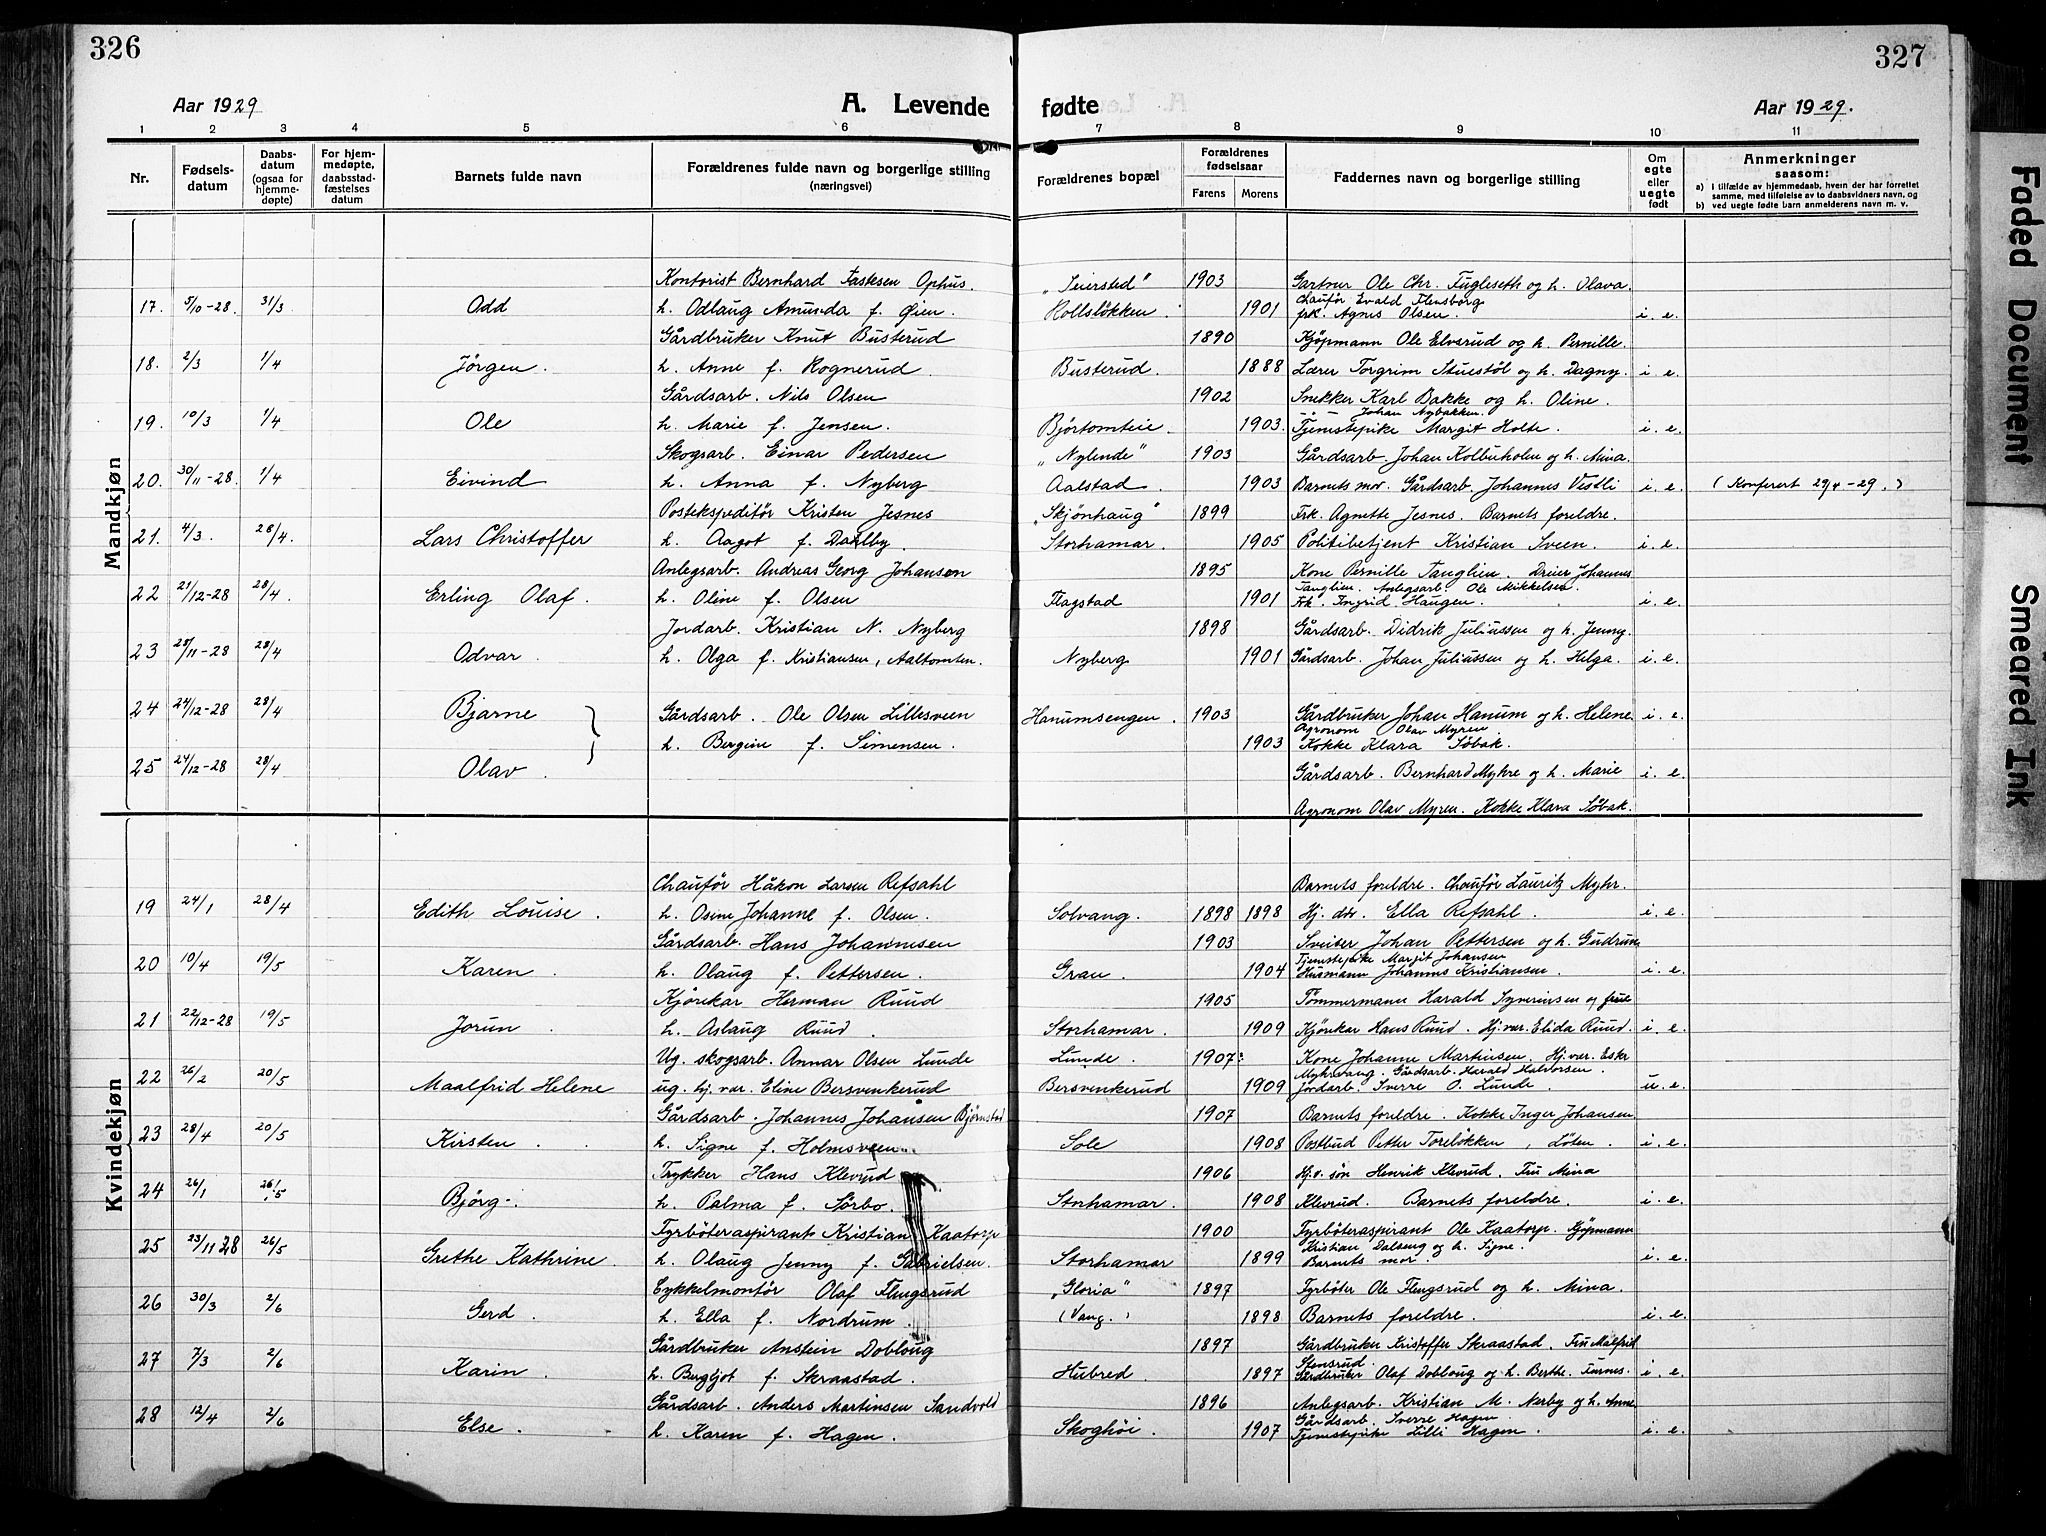 326
327
Aar 1929
A. Levende fødte
Aar 1929.
1 2 3 4 5 6 7 8 9 10 11
Nr.
Fødsels-
datum
Daabs-
datum
(ogsaa for
hjemme-
døpte)
For hjem-
medøpte,
daabsstad-
fæstelses
datum
Barnets fulde navn
Forældrenes fulde navn og borgerlige stilling
(næringsvei)
Forældrenes bopæl
Forældrenes
fødselsaar
Farens Morens
Faddernes navn og borgerlige stilling
Om
egte
eller
uegte
født
Anmerkninger
saasom:
a) i tilfælde av hjemmedaab, hvem der har forrettet
samme, med tilføielse av to daabsvidners navn, og
b) ved uegte fødte barn anmelderens navn m. v.
Mandkjøn
Kontorist Bernhard Fastesen Ophus. "Seiersted" 1903 Gartner Ole Chr. Fugleseth og h. Olava.
Chaufør Evald Flensborg
17. 5/10-28. 31/3 Odd h. Odlaug Amunda f. Øien. Rollsløkken. 1901 frk. Agnes Olsen. i. e.
Gårdbruker Knut Busterud 1890 Kjøpmann Ole Elvsrud og h. Pernille.
18. 2/3 1/4 Jørgen. h. Anne f. Rognerud. Busterud. 1888 Lærer Torgrim Stuestøl og h. Dagny. i. e.
Gårdsarb. Nils Olsen 1902 Snekker Karl Bakke og h. Oline.
Johan Nybakken.
19. 10/3 1/4 Ole h. Marie f. Jensen. Bjørtomteie. 1903. Tjenestepike Margit Holte. i. e.
Skogsarb. Einar Pedersen "Nylende" 1903 Gårdsarb. Johan Kolbuholm og h. Mina.
20. 30/11-28. 1/4 Eivind h. Anna f. Nyberg Aalstad. 1903 Barnets mor. Gårdsarb. Johannes Vestli i. e. (Konferert 29/4-29.)
Postekspeditør Kristen Jesnes "Skjønhaug" 1899 Frk. Agnette Jesnes. Barnets foreldre.
21. 4/3. 28/4. Lars Christoffer h. Aagot f. Dahlby. Storhamar. 1905 Politibetjent Kristian Sveen. i. e.
Anlegsarb. Andreas Georg Johansen 1895 Kone Pernille Tanglien. Dreier Johannes
Tanglien. Anlegsarb. Ole Mikkelsen.
22 21/12-28 28/4. Erling Olaf. h. Oline f. Olsen Flagstad 1901 Frk. Ingrid Haugen. i. e.
Jordarb. Kristian N. Nyberg 1898 Gårdsarb. Didrik Juliussen og h. Jenny.
23 28/11-28 28/4 Odvar. h. Olga f. Kristiansen, Aaltomten. Nyberg 1901 Gårdsarb. Johan Juliussen og h. Helga. i. e.
24 24/12-28 28/4 Bjarne Gårdsarb. Ole Olsen Lillesveen Hanumsengen. 1903 Gårdbruker Johan Hanum og h. Helene i. e.
Agronom Olav Myren
h. Bergine f. Simensen. 1903 Kokke Klara Søbak.
25 24/12-28 28/4 Olav. Gårdsarb. Bernhard Myhre og h. Marie i. e.
Agronom Olav Myren. Kokke Klara Søbak.
Kvindekjøn
Chaufør Håkon Larsen Refsahl Barnets foreldre. Chaufør Lauritz Myhr.
19 24/1 28/4 Edith Louise. h. Osine Johanne f. Olsen. Solvang. 1898 1898 Hj. dtr. Ella Refsahl. i. e.
Gårdsarb. Hans Johannesen 1903 Sveiser Johan Pettersen og h. Gudrun
Tjenstepike Margit Johansen
20 10/4 19/5 Karen. h. Olaug f. Pettersen. Gran. 1904 Husmann Johannes Kristiansen. i. e.
Kjørekar Herman Ruud 1905 Tømmermann Harald Syverinsen og frue
21 22/12-28 19/5 Jorun. h. Aslaug Ruud. Storhamar. 1909 Kjørekar Hans Ruud. Hj. vær. Elida Ruud. i. e.
Ug. skogsarb. Annar Olsen Lunde Lunde. 1907 Kone Johanne Martinsen. Hj. vær. Ester
Myhrvang. Gårdsarb. Harald Halvorsen.
22 26/2 20/5 Maalfrid Helene ug. hj. vær. Eline Bersvenkerud Bersvenkerud 1909 Jordarb. Sverre O. Lunde. u. e.
Gårdsarb. Johannes Johansen Bjørnstad 1907 Barnets foreldre. Kokke Inger Johansen
23 28/4 20/5 Kirsten. h. Signe f. Holmsveen. Sole 1908 Postbud Petter Toreløkken, Løten. i. e.
Trykker Hans Klevrud 1906 Hj. v. søn Henrik Klevrud. Fru Mina
24 26/1 26/5 Bjørg. h. Palma f. Sørbo. Storhamar. 1908 Klevrud. Barnets foreldre. i. e.
Fyrbøteraspirant Kristian Kaatorp 1900 Fyrbøteraspirant Ole Kaatorp. Kjøpmann
Kristian Dalseng og h. Signe.
25 23/11 28 26/5 Grethe Kathrine. h. Olaug Jenny f. Gabrielsen. Storhamar 1899 Barnets mor. i. e.
Cykkelmontør Olaf Flengsrud "Gloria" 1897 Fyrbøter Ole Flengsrud og h. Mina.
26 30/3 2/6 Gerd. h. Ella f. Nordrum. (Vang.) 1898 Barnets foreldre. i. e.
Gårdbruker Anstein Dobloug 1897 Gårdbruker Kristoffer Skraastad. Fru Malfrid
Stensrud.
27 7/3 2/6 Karin. h. Bergljot f. Skraastad. Hubred. 1897 Gårdbruker Olaf Dobloug og h. Berthe. Furnes. i. e.
Gårdsarb. Anders Martinsen Sandvold 1896 Anlegsarb. Kristian M. Nerby og h. Anne
Gårdsarb. Sverre Hagen
28 12/4 2/6 Else. h. Karen f. Hagen. Skoghøi. 1907 Tjenestepike Lilli Hagen. i. e.
Faded Document
Smeared Ink